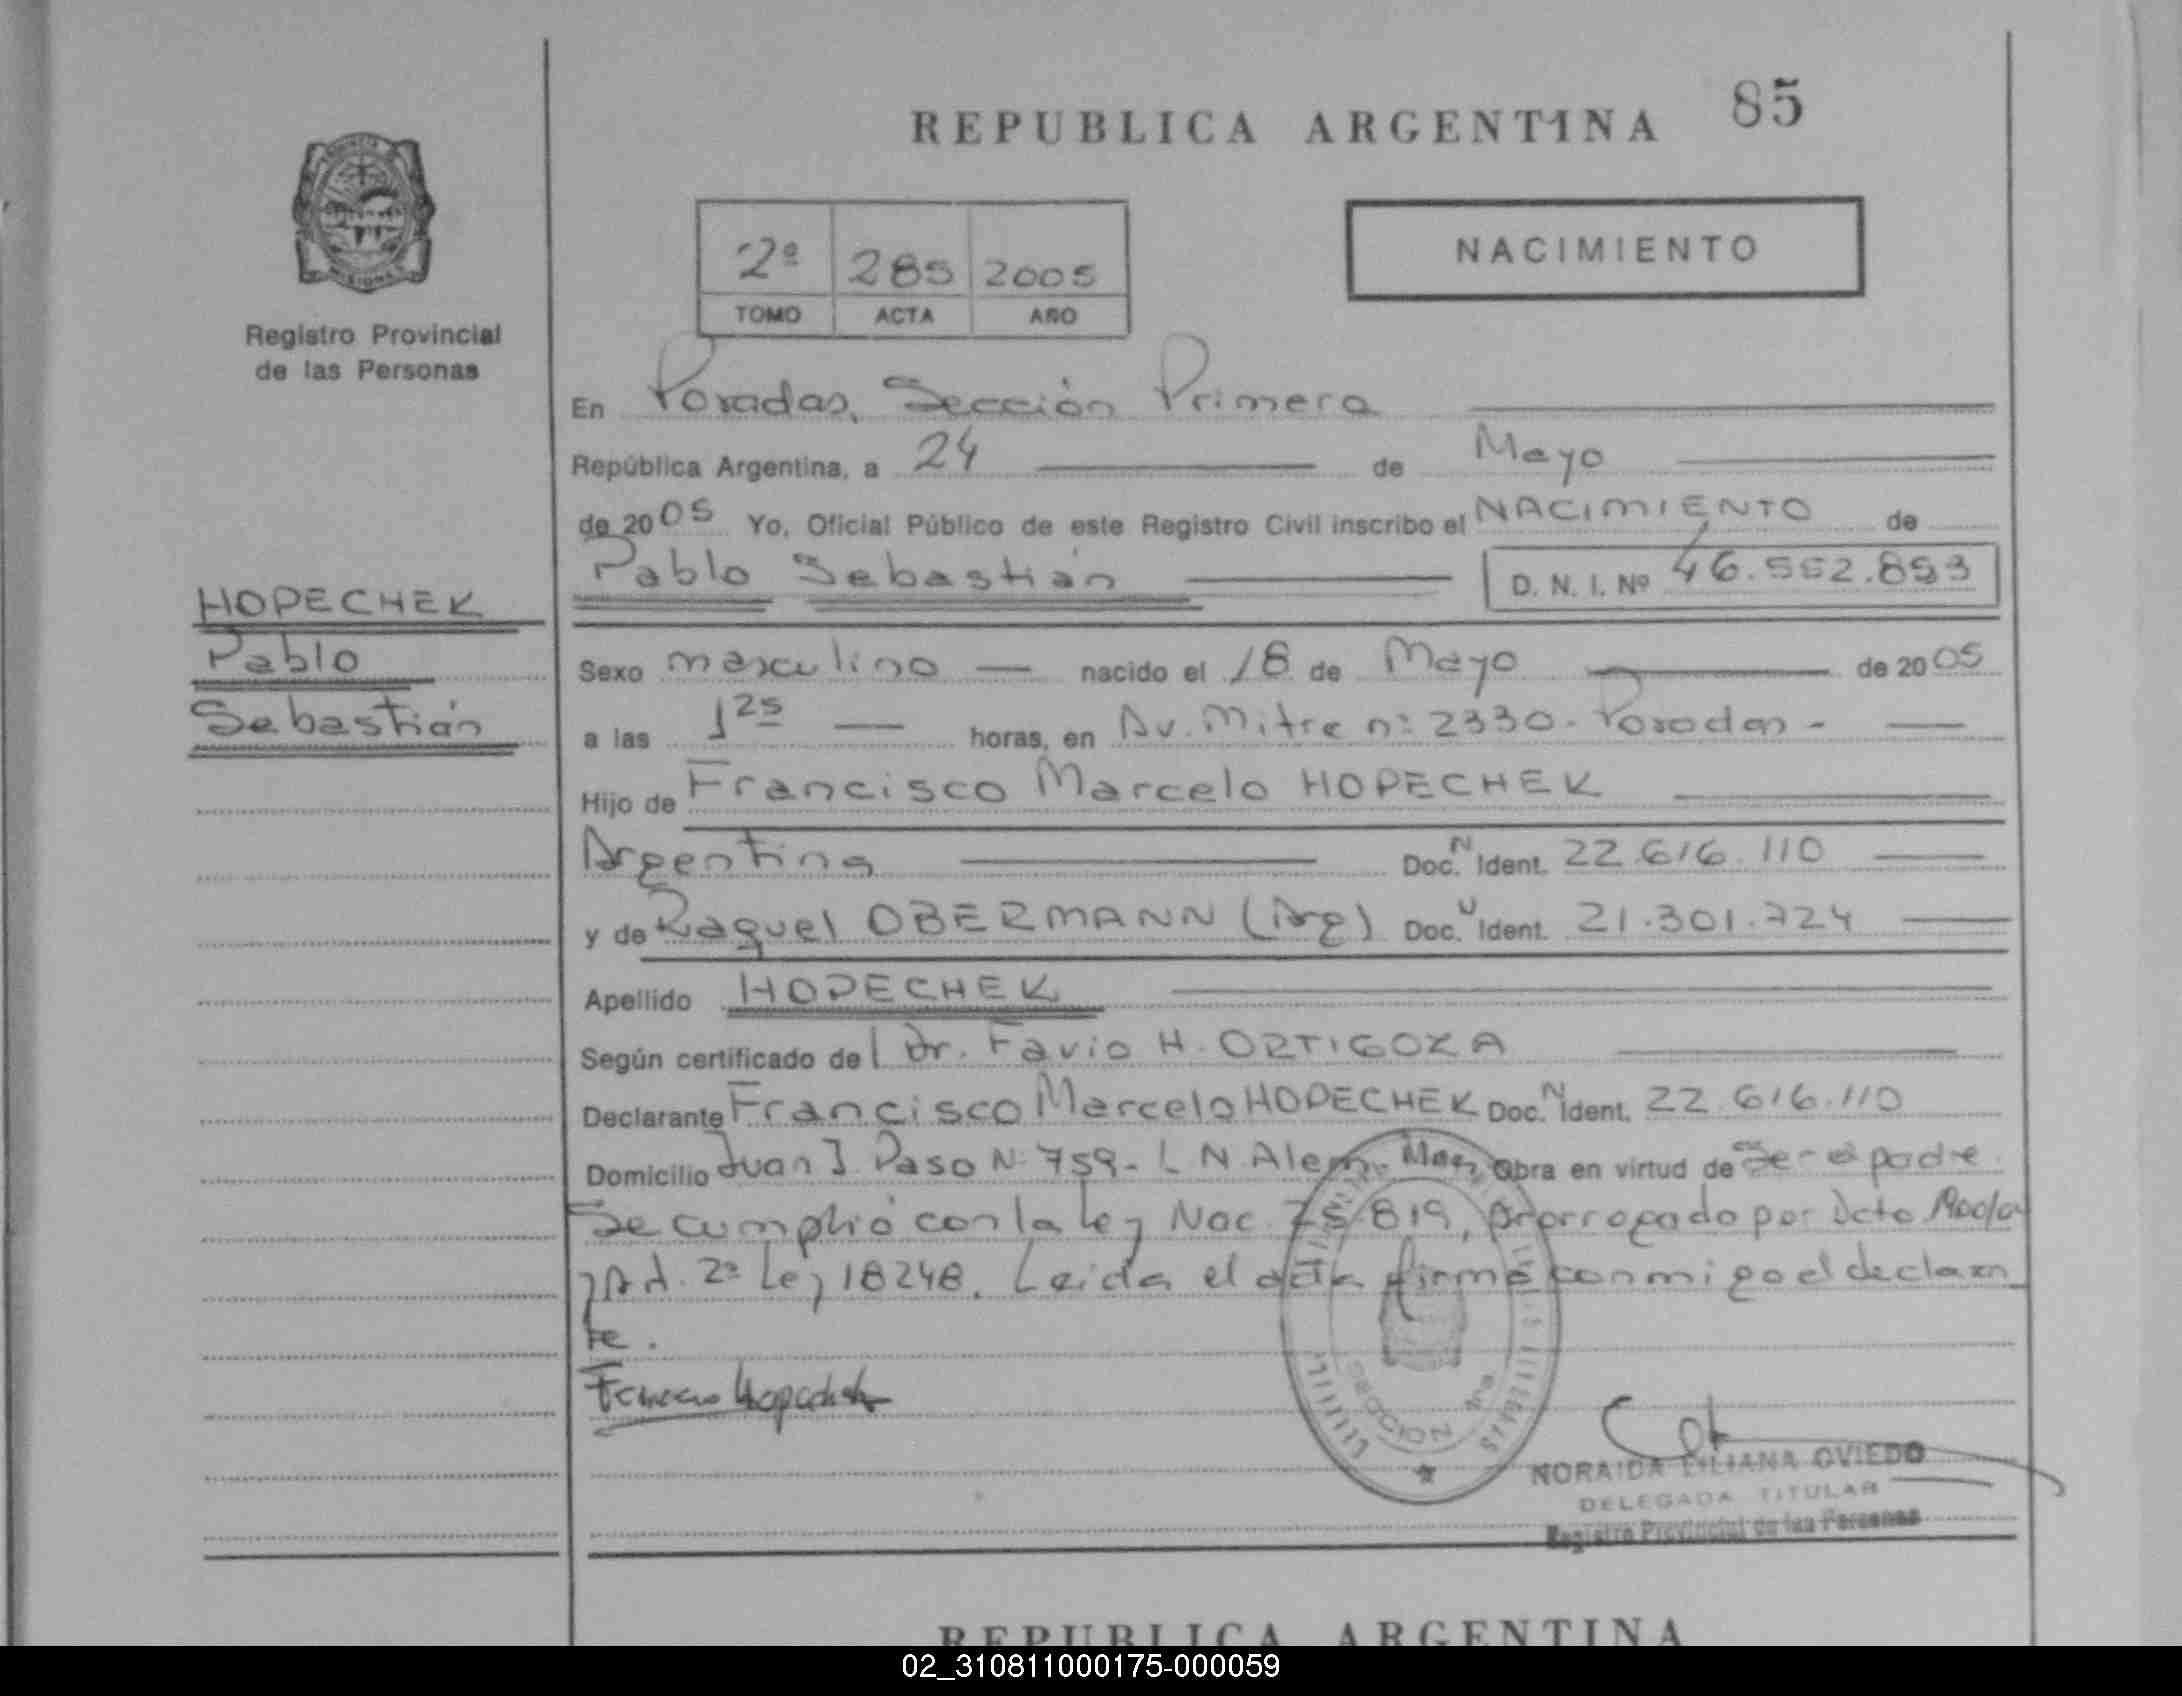 REPUBLICA ARGENTINA 85
2º 285 2005
TOMO ACTA AÑO
NACIMIENTO
Registro Provincial
de las Personas
En Posadas, Sección Primera
República Argentina, a 24 de Mayo
de 2005 Yo, Oficial Público de este Registro Civil inscribo el NACIMIENTO de
Pablo Sebastián D. N. I. Nº 46.552.853
HOPECHEK
Pablo
Sebastián
Sexo masculino nacido el 18 de Mayo de 2005
a las 1 25 horas, en Av. Mitre nº 2330 - Posadas -
Hijo de Francisco Marcelo HOPECHEK
Argentina Doc. N Ident. 22.616.110
y de Raquel OBERMANN (Arg) Doc. N Ident. 21.301.724
Apellido HOPECHEK
Según certificado del Dr. Favio H. ORTIGOZA
Declarante Francisco Marcelo HOPECHEK Doc. N Ident. 22.616.110
Domicilio Juan J. Paso Nº 759 - L N Alem - Mnes Obra en virtud de Ser el padre.
Se cumplió con la Ley Nac. 25.819, prorrogado por Dcto
y Art. 2º Ley 18248. Leida el acta firma conmigo el declaran
te.
SECCION 1ra
NORAIDA LILIANA OVIEDO
DELEGADA TITULAR
Registro Provincial de las Personas
REPUBLICA ARGENTINA
02_310811000175-000059